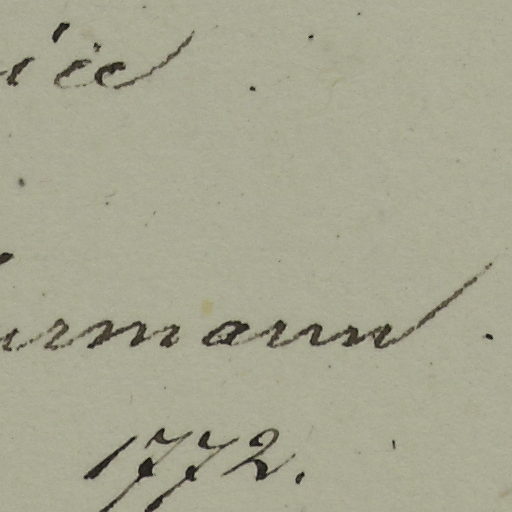 urmann.
1772.